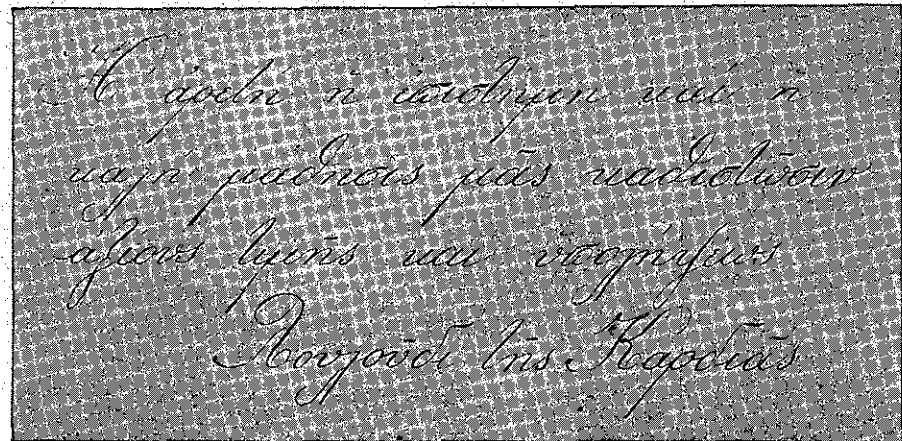 Ἡ ἀρετὴ ἡ ἐπιστήμη καὶ ἡ
καλὴ μάθησις μᾶς καθιστῶσιν
ἀξίους τιμῆς καὶ ὑπολήψεως
Λουλοῦδι τῆς Καρδιᾶς